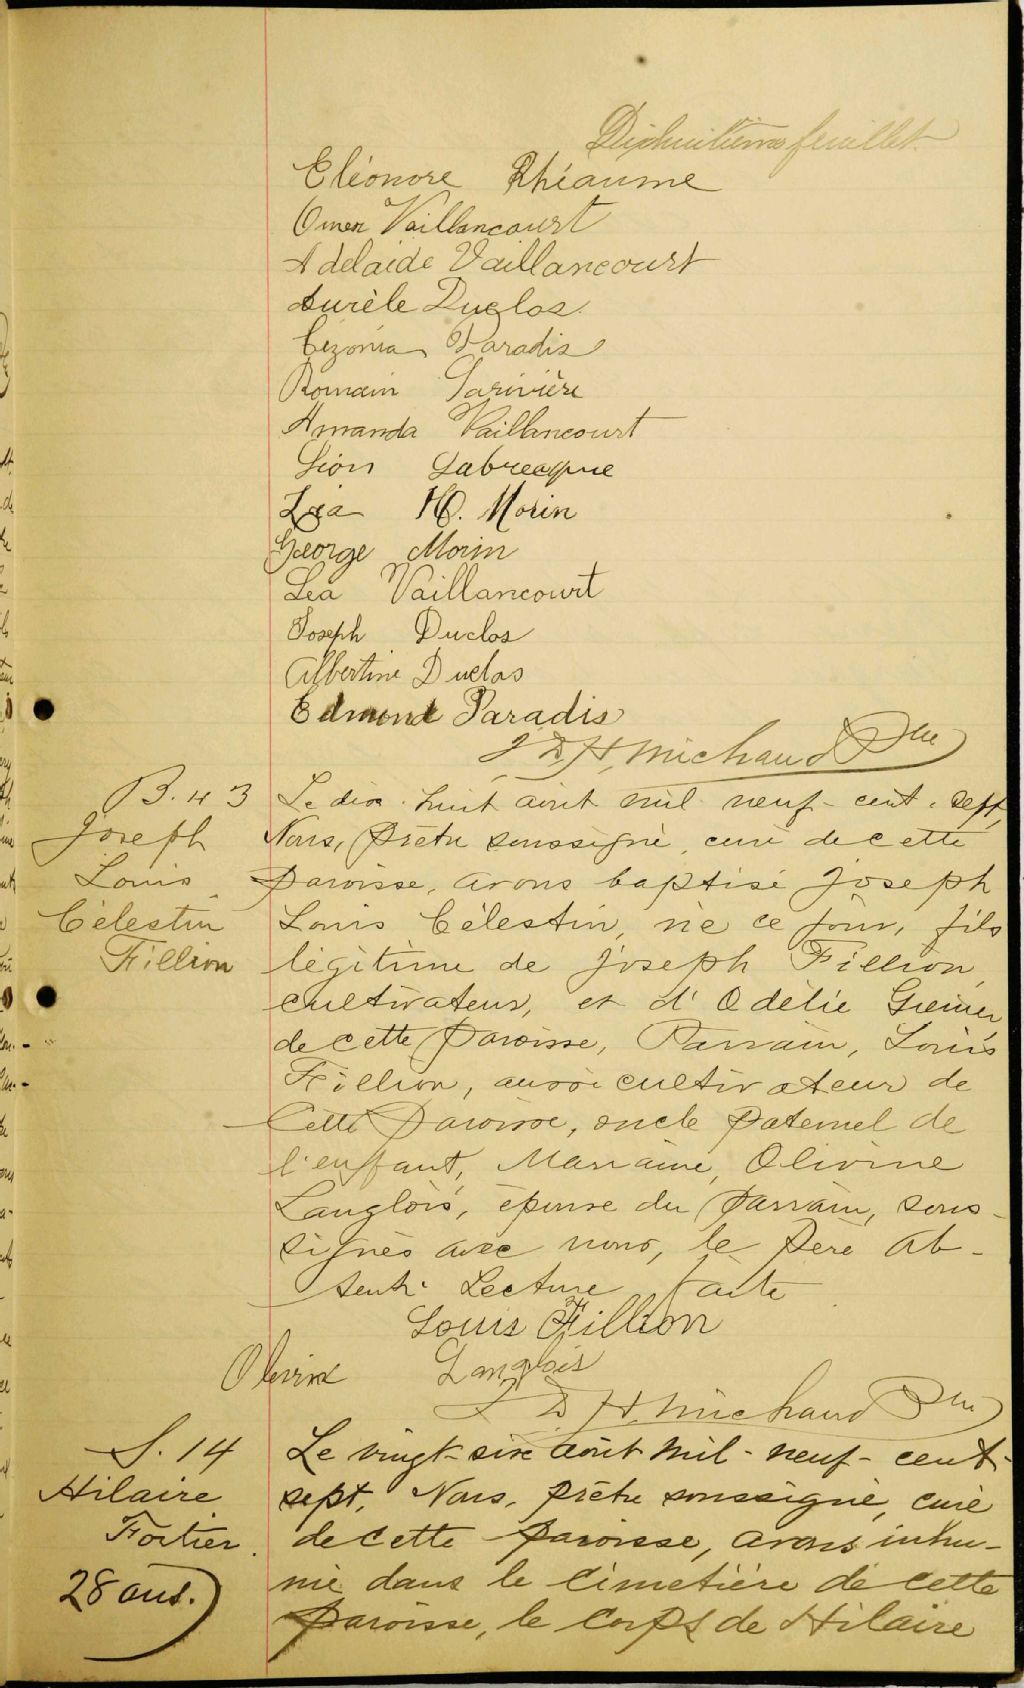 Dixhuitième feuillet.
Eléonore Rhéaume
Omer Vaillancourt
Adelaide Vaillancourt
Aurèle Duclos.
Cézonia Paradis
Romain Larivière
Amanda Vaillancourt
Léon Labrecque
Léa H. Morin
George Morin
Léa Vaillancourt
Joseph Duclos
Albertine Duclos
Edmond Paradis
J D H, Michaud Ptre
B. 43
Joseph
Louis
Célestin
Fillion
Le dix-huit août mil neuf-cent-sept,
Nous, prêtre soussigné, curé de cette
paroisse, avons baptisé Joseph
Louis Célestin, né ce jour, fils
légitime de Joseph Fillion,
cultivateur, et d'Odélie Grenier
de cette paroisse, Parrain, Louis
Fillion, aussi cultivateur de
cette paroisse, oncle paternel de
l'enfant, Marraine, Olivine
Langlois, épouse du parrain, sous-
signés avec nous, le père ab-
sent. Lecture faite
Louis Fillion
Olivine Langlois
J D H, Michaud Ptre
S. 14
Hilaire
Fortier.
28 ans.
Le vingt-six août mil-neuf-cent-
sept, Nous, prêtre soussigné, curé
de cette paroisse, avons inhu-
mé dans le cimetière de cette
paroisse, le corps de Hilaire